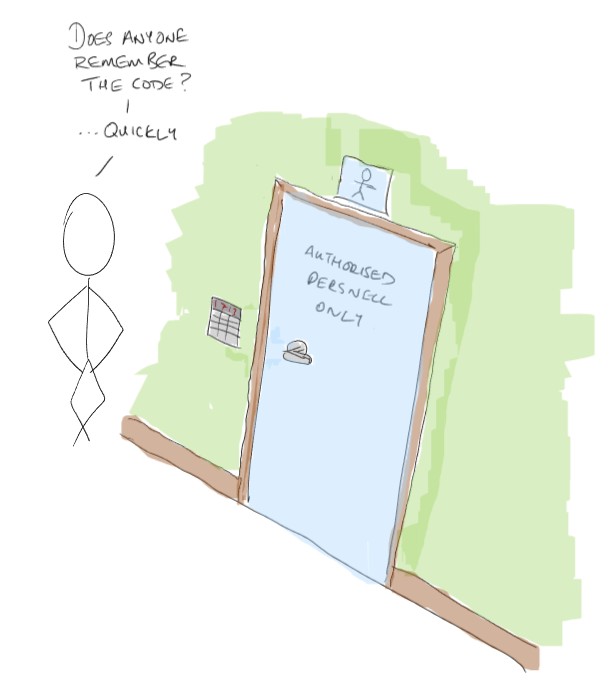 DOES ANYONE
REMEMBER
THE CODE?
...QUICKLY
AUTHORISED
PERSNELL
ONLY